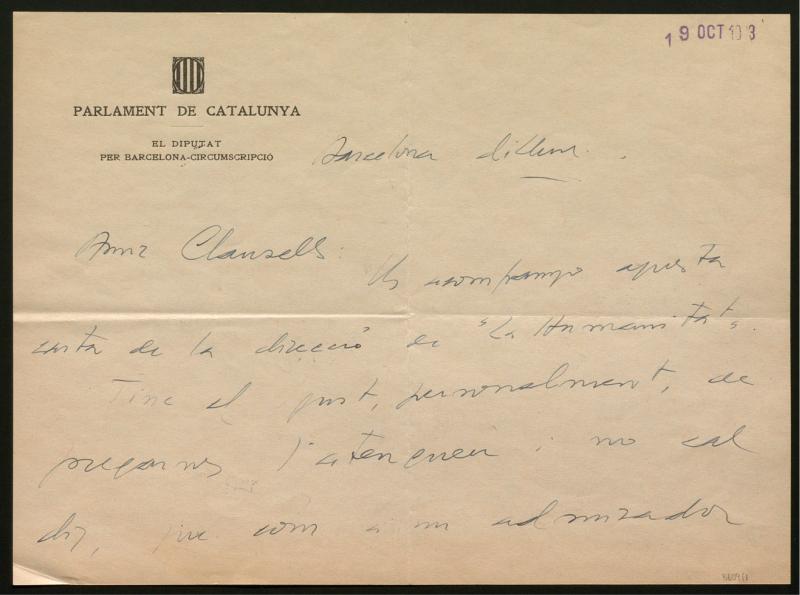 19 OCT 193
PARLAMENT DE CATALUNYA
EL DIPUTAT
PER BARCELONA-CIRCUMSCRIPCIÓ
Barcelona dilluns.
Amic Clausells:
Us acompanyo aquesta
carta de la direcció de "La Humanitat".
Tinc el gust, personalment, de
pregar-vos l'atengueu i no cal
dir, que com a un admirador